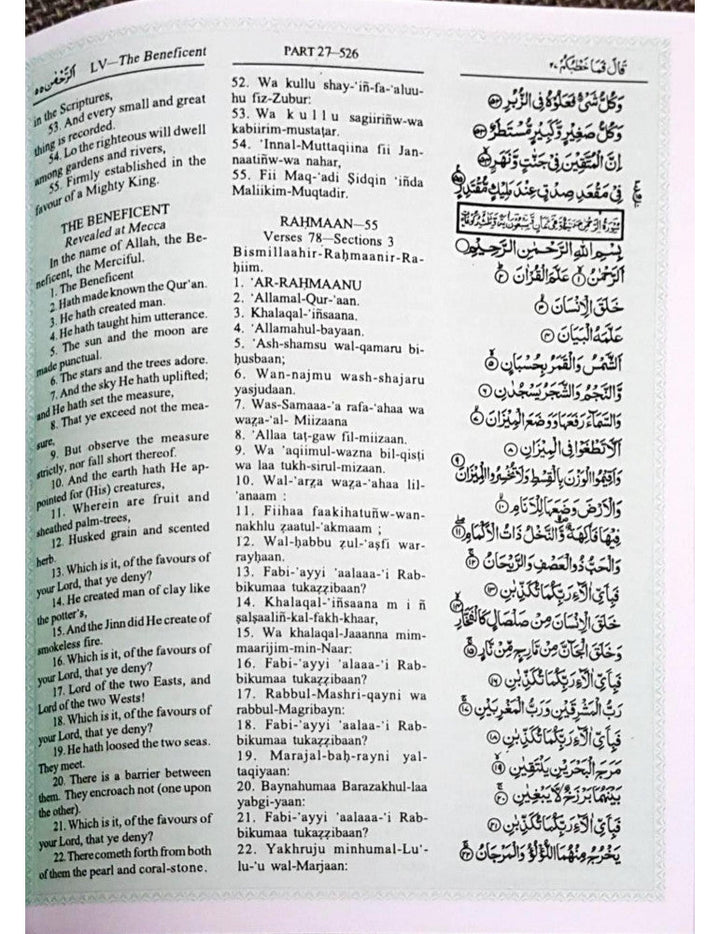 الرَّحْمٰن ٥٥ LV—The Beneficent
PART 27–526
قَالَ فَمَا خَطْبُكُمْ ٢٧
in the Scriptures,
53. And every small and great
thing is recorded.
54. Lo the righteous will dwell
among gardens and rivers,
55. Firmly established in the
favour of a Mighty King.
THE BENEFICENT
Revealed at Mecca
In the name of Allah, the Be-
neficent, the Merciful.
1. The Beneficent
2. Hath made known the Qur'an.
3. He hath created man.
4. He hath taught him utterance.
5. The sun and the moon are
made punctual.
6. The stars and the trees adore.
7. And the sky He hath uplifted;
and He hath set the measure,
8. That ye exceed not the mea-
sure,
9. But observe the measure
strictly, nor fall short thereof.
10. And the earth hath He ap-
pointed for (His) creatures,
11. Wherein are fruit and
sheathed palm-trees,
12. Husked grain and scented
herb.
13. Which is it, of the favours of
your Lord, that ye deny?
14. He created man of clay like
the potter's,
15. And the Jinn did He create of
smokeless fire.
16. Which is it, of the favours of
your Lord, that ye deny?
17. Lord of the two Easts, and
Lord of the two Wests!
18. Which is it, of the favours of
your Lord, that ye deny?
19. He hath loosed the two seas.
They meet.
20. There is a barrier between
them. They encroach not (one upon
the other).
21. Which is it, of the favours of
your Lord, that ye deny?
22. There cometh forth from both
of them the pearl and coral-stone.
52. Wa kullu shay-'iñ-fa-'aluu-
hu fiz-Zubur:
53. Wa kullu sagiiriñw-wa
kabiirim-mustaṭar.
54. 'Innal-Muttaqiina fii Jan-
naatiñw-wa nahar,
55. Fii Maq-'adi Ṣidqin 'iñda
Maliikim-Muqtadir.
RAḤMAAN—55
Verses 78—Sections 3
Bismillaahir-Raḥmaanir-Ra-
ḥiim.
1. 'AR-RAḤMAANU
2. 'Allamal-Qur-'aan.
3. Khalaqal-'iñsaana.
4. 'Allamahul-bayaan.
5. 'Ash-shamsu wal-qamaru bi-
ḥusbaan;
6. Wan-najmu wash-shajaru
yasjudaan.
7. Was-Samaaa-'a rafa-'ahaa wa
waẓa-'al- Miizaana
8. 'Allaa taṭ-gaw fil-miizaan.
9. Wa 'aqiimul-wazna bil-qisṭi
wa laa tukh-sirul-mizaan.
10. Wal-'arẓa waẓa-'ahaa lil-
'anaam :
11. Fiihaa faakihatuñw-wan-
nakhlu ẕaatul-'akmaam ;
12. Wal-ḥabbu ẕul-'aṣfi war-
rayḥaan.
13. Fabi-'ayyi 'aalaaa-'i Rab-
bikumaa tukaẕẕibaan?
14. Khalaqal-'iñsaana miñ
ṣalṣaaliñ-kal-fakh-khaar,
15. Wa khalaqal-Jaaanna mim-
maarijim-min-Naar:
16. Fabi-'ayyi 'alaaa-'i Rab-
bikumaa tukaẕẕibaan?
17. Rabbul-Mashri-qayni wa
rabbul-Magribayn:
18. Fabi-'ayyi 'aalaa-'i Rab-
bikumaa tukaẕẕibaan?
19. Marajal-baḥ-rayni yal-
taqiyaan:
20. Baynahumaa Barazakhul-laa
yabgi-yaan:
21. Fabi-'ayyi 'aalaaa-'i Rab-
bikumaa tukaẕẕibaan?
22. Yakhruju minhumal-Lu'-
lu-'u wal-Marjaan:
وَكُلُّ شَىْءٍ فَعَلُوْهُ فِى الزُّبُرِ ۝٥٢
وَكُلُّ صَغِيْرٍ وَّكَبِيْرٍ مُّسْتَطَرٌ ۝٥٣
اِنَّ الْمُتَّقِيْنَ فِىْ جَنّٰتٍ وَّنَهَرٍ ۝٥٤
فِىْ مَقْعَدِ صِدْقٍ عِنْدَ مَلِيْكٍ مُّقْتَدِرٍ ۝٥٥
بِسْمِ اللّٰهِ الرَّحْمٰنِ الرَّحِيْمِ
اَلرَّحْمٰنُ ۝١ عَلَّمَ الْقُرْاٰنَ ۝٢
خَلَقَ الْاِنْسَانَ ۝٣
عَلَّمَهُ الْبَيَانَ ۝٤
اَلشَّمْسُ وَالْقَمَرُ بِحُسْبَانٍ ۝٥
وَّالنَّجْمُ وَالشَّجَرُ يَسْجُدٰنِ ۝٦
وَالسَّمَآءَ رَفَعَهَا وَوَضَعَ الْمِيْزَانَ ۝٧
اَلَّا تَطْغَوْا فِى الْمِيْزَانِ ۝٨
وَاَقِيْمُوا الْوَزْنَ بِالْقِسْطِ وَلَا تُخْسِرُوا الْمِيْزَانَ ۝٩
وَالْاَرْضَ وَضَعَهَا لِلْاَنَامِ ۝١٠
فِيْهَا فَاكِهَةٌ وَّالنَّخْلُ ذَاتُ الْاَكْمَامِ ۝١١
وَالْحَبُّ ذُو الْعَصْفِ وَالرَّيْحَانُ ۝١٢
فَبِاَىِّ اٰلَآءِ رَبِّكُمَا تُكَذِّبٰنِ ۝١٣
خَلَقَ الْاِنْسَانَ مِنْ صَلْصَالٍ كَالْفَخَّارِ ۝١٤
وَخَلَقَ الْجَآنَّ مِنْ مَّارِجٍ مِّنْ نَّارٍ ۝١٥
فَبِاَىِّ اٰلَآءِ رَبِّكُمَا تُكَذِّبٰنِ ۝١٦
رَبُّ الْمَشْرِقَيْنِ وَرَبُّ الْمَغْرِبَيْنِ ۝١٧
فَبِاَىِّ اٰلَآءِ رَبِّكُمَا تُكَذِّبٰنِ ۝١٨
مَرَجَ الْبَحْرَيْنِ يَلْتَقِيٰنِ ۝١٩
بَيْنَهُمَا بَرْزَخٌ لَّا يَبْغِيٰنِ ۝٢٠
فَبِاَىِّ اٰلَآءِ رَبِّكُمَا تُكَذِّبٰنِ ۝٢١
يَخْرُجُ مِنْهُمَا اللُّؤْلُؤُ وَالْمَرْجَانُ ۝٢٢